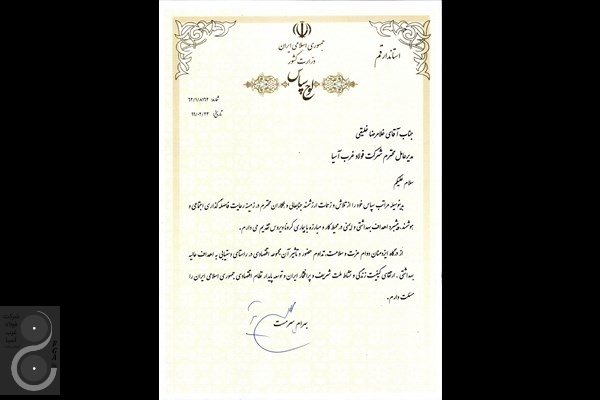 جمهوری اسلامی ایران
وزارت کشور
استاندار قم
لوح سپاس
شماره: ۶۲/۱/۸/۲۲
تاریخ: ۹۹/۰۴/۲۳
جناب آقای غلامرضا خلیقی
مدیرعامل محترم شرکت فولاد غرب آسیا
سلام علیکم
بدینوسیله مراتب سپاس خود را از تلاش و زحمات ارزشمند جنابعالی و همکاران محترم در زمینه رعایت فاصله گذاری اجتماعی و
هوشمند، پیشبرد اهداف بهداشتی و ایمنی در محیط کار و مبارزه با بیماری کرونا ویروس تقدیم می دارم.
از درگاه ایزدمنان دوام عزت و سلامت، تداوم حضور و تأثیر آن مجموعه اقتصادی در راستای دستیابی به اهداف عالیه
بهداشتی، ارتقای کیفیت زندگی و نشاط ملت شریف و پرافتخار ایران و توسعه پایدار نظام اقتصادی جمهوری اسلامی ایران را
مسئلت دارم.
بهرام سرمست
شرکت
فولاد
غرب
آسیا